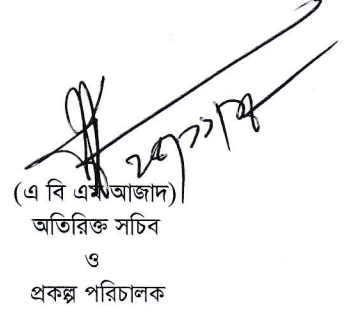 (এ বি এম আজাদ)
অতিরিক্ত সচিব
ও
প্রকল্প পরিচালক